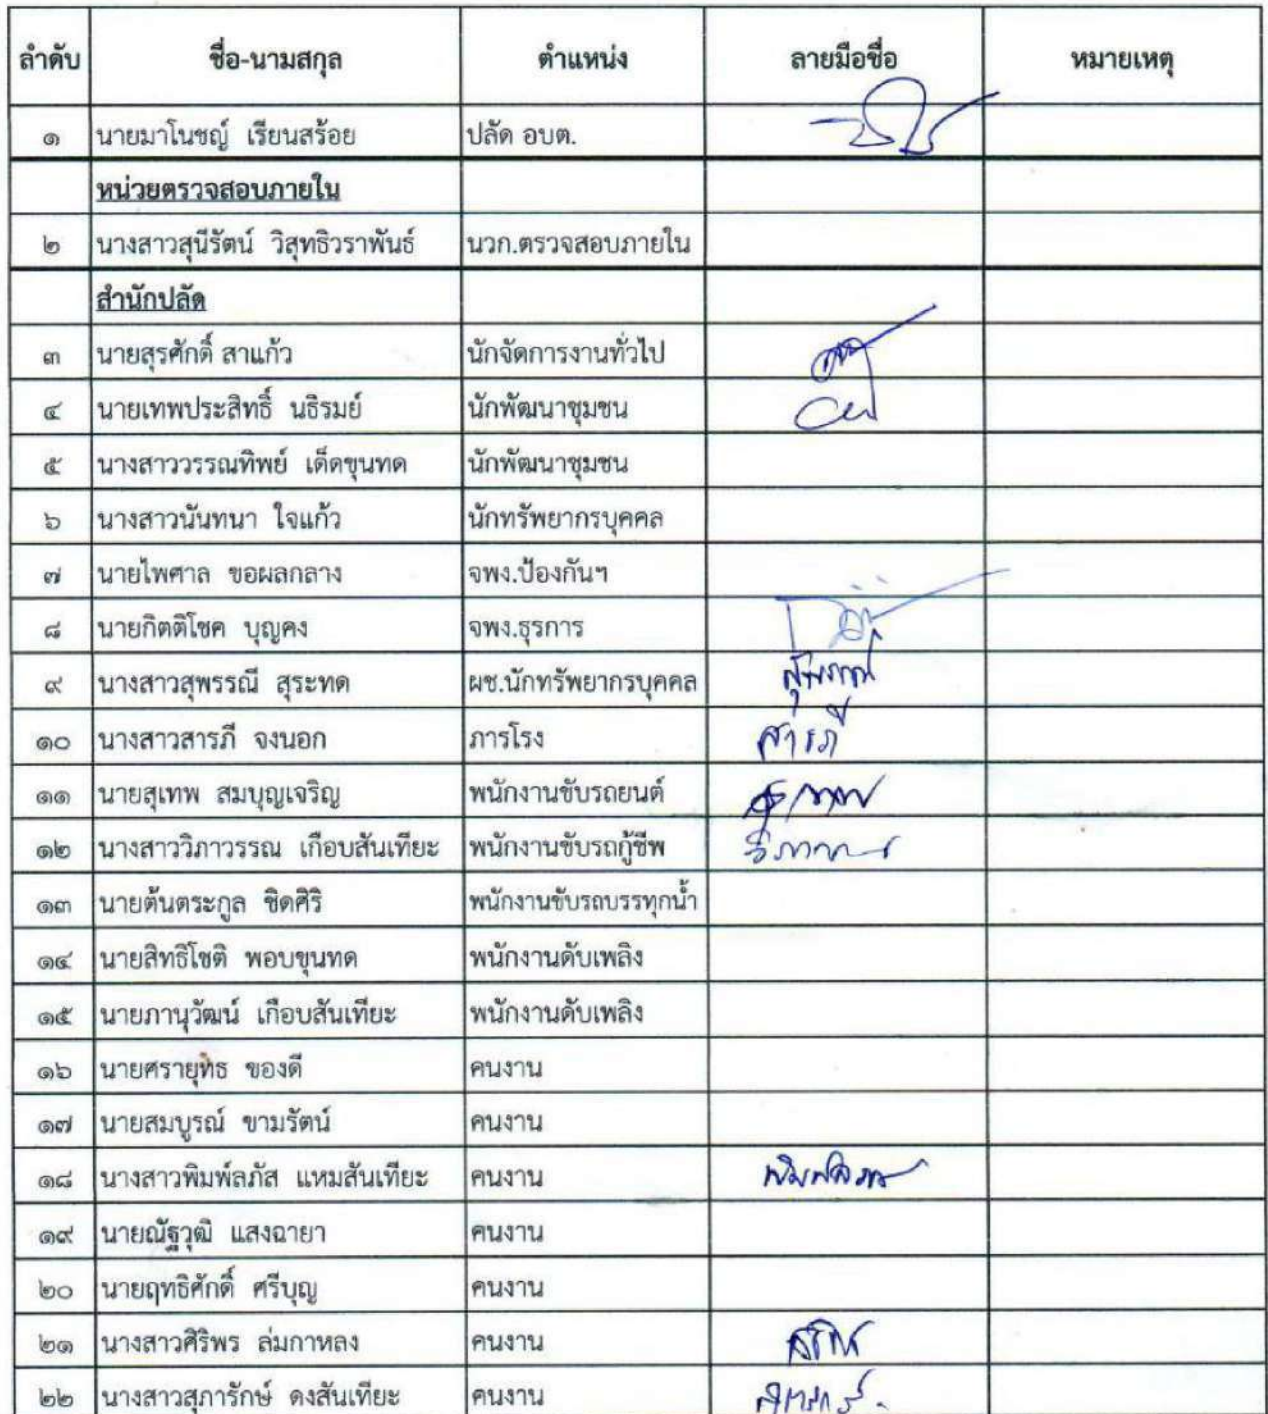 ลำดับ ชื่อ-นามสกุล ตำแหน่ง ลายมือชื่อ หมายเหตุ
๑ นายมาโนชญ์ เรียนสร้อย ปลัด อบต.
หน่วยตรวจสอบภายใน
๒ นางสาวสุนีรัตน์ วิสุทธิวราพันธ์ นวก.ตรวจสอบภายใน
สำนักปลัด
๓ นายสุรศักดิ์ สาแก้ว นักจัดการงานทั่วไป
๔ นายเทพประสิทธิ์ นธิรมย์ นักพัฒนาชุมชน
๕ นางสาววรรณทิพย์ เด็ดขุนทด นักพัฒนาชุมชน
๖ นางสาวนันทนา ใจแก้ว นักทรัพยากรบุคคล
๗ นายไพศาล ขอผลกลาง จพง.ป้องกันฯ
๘ นายกิตติโชค บุญคง จพง.ธุรการ
๙ นางสาวสุพรรณี สุระทด ผช.นักทรัพยากรบุคคล
๑๐ นางสาวสารภี จงนอก ภารโรง สารภี
๑๑ นายสุเทพ สมบุญเจริญ พนักงานขับรถยนต์
๑๒ นางสาววิภาวรรณ เกือบสันเทียะ พนักงานขับรถกู้ชีพ
๑๓ นายต้นตระกูล ชิดศิริ พนักงานขับรถบรรทุกน้ำ
๑๔ นายสิทธิโชติ พอบขุนทด พนักงานดับเพลิง
๑๕ นายภานุวัฒน์ เกือบสันเทียะ พนักงานดับเพลิง
๑๖ นายศรายุทธ ของดี คนงาน
๑๗ นายสมบูรณ์ ขามรัตน์ คนงาน
๑๘ นางสาวพิมพ์ลภัส แหมสันเทียะ คนงาน
๑๙ นายณัฐวุฒิ แสงฉายา คนงาน
๒๐ นายฤทธิศักดิ์ ศรีบุญ คนงาน
๒๑ นางสาวศิริพร ล่มกาหลง คนงาน
๒๒ นางสาวสุภารักษ์ ดงสันเทียะ คนงาน